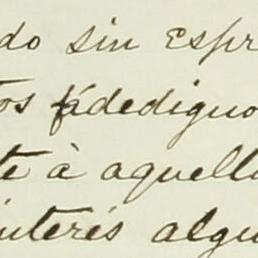 do sin espr
os fadedigno
te à aquell
interés algu